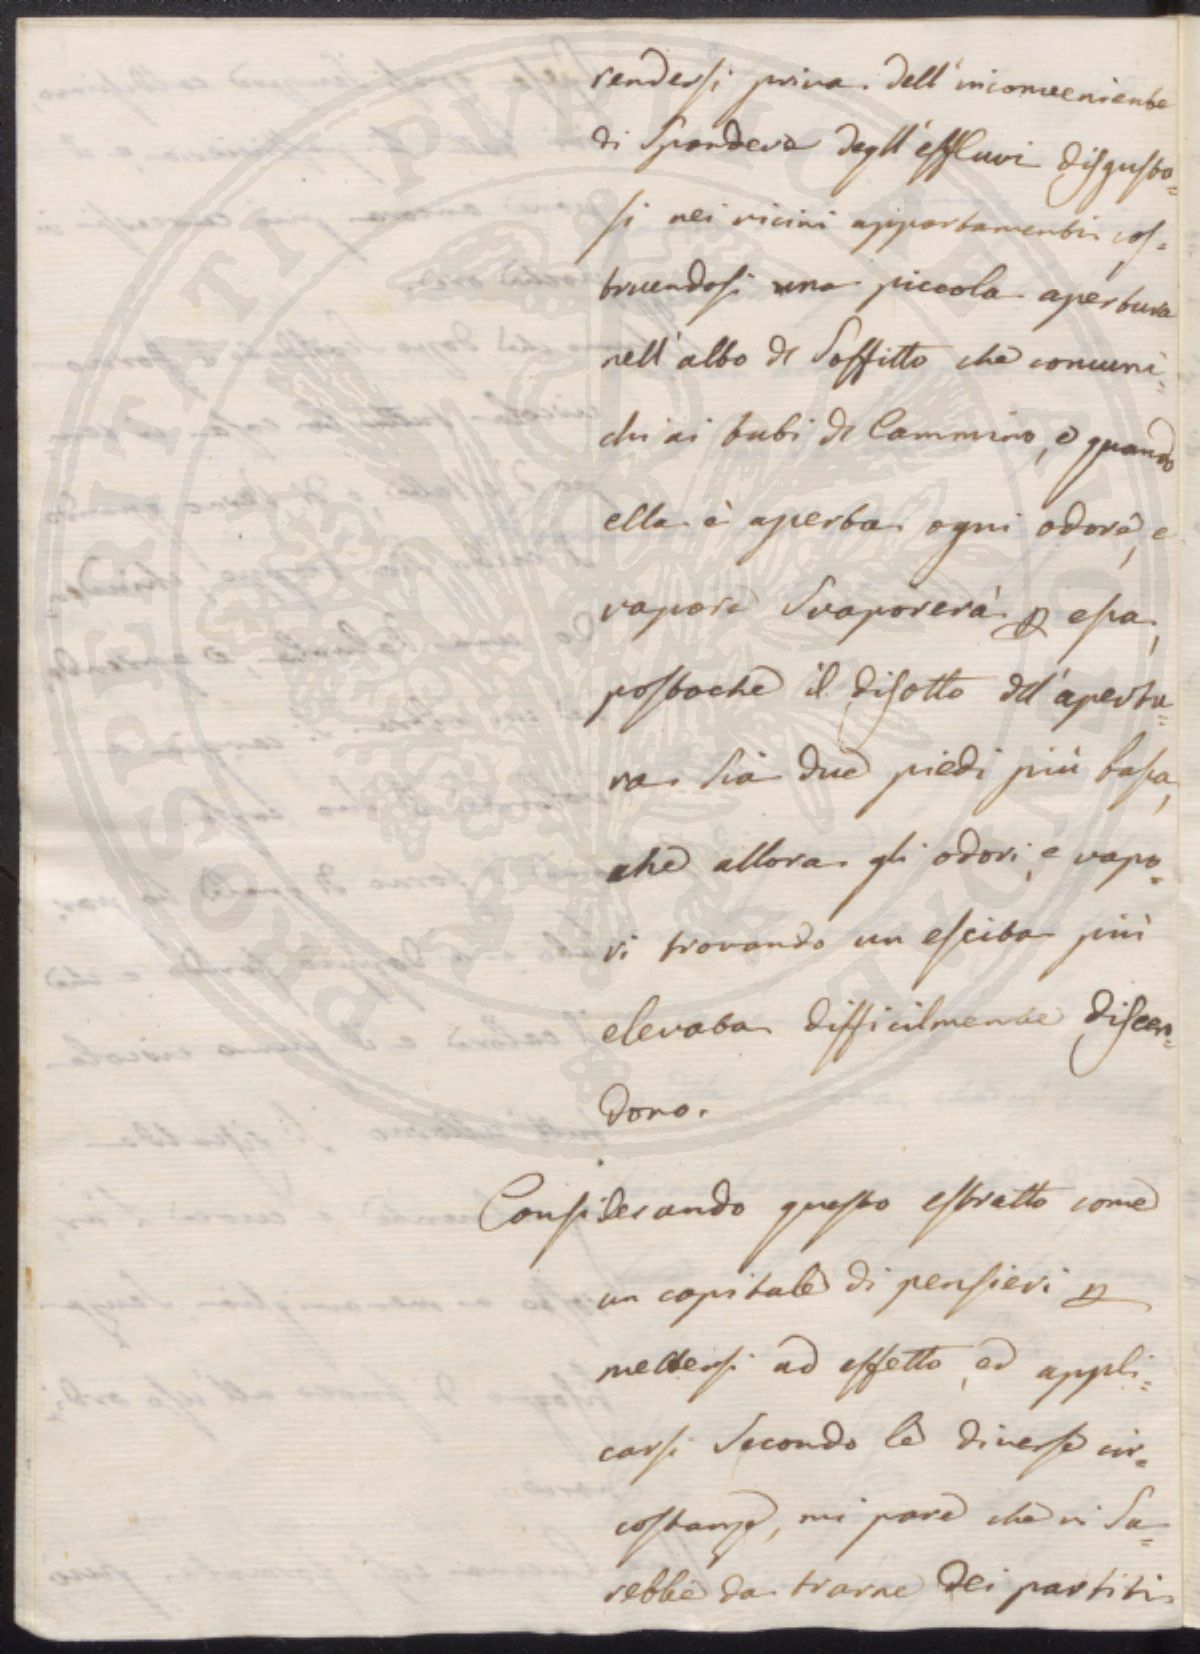 rendersi priva dell'inconveniente
di Spandere degl'effluvi disgusto=
si nei vicini appartamenti, cos=
truendosi una piccola apertura
nell'alto di Soffitto che comuni=
chi ai tubi di Cammino, e quando
ella è aperta ogni odore, e
vapore Svaporerà p essa,
postochè il disotto dell'apertu=
ra Sia due piedi più bassa,
che allora gli odori, e vapo=
ri trovando un escita più
elevata difficilmente discen=
dono.
Considerando questo estratto come
un capitale di pensieri p
mettersi ad effetto, ed appli=
carsi Secondo le diverse cir=
costanze, mi pare che vi Sa=
rebbe da trarne dei partiti
PROSPERITATI PVBLICAE AVGENDAE